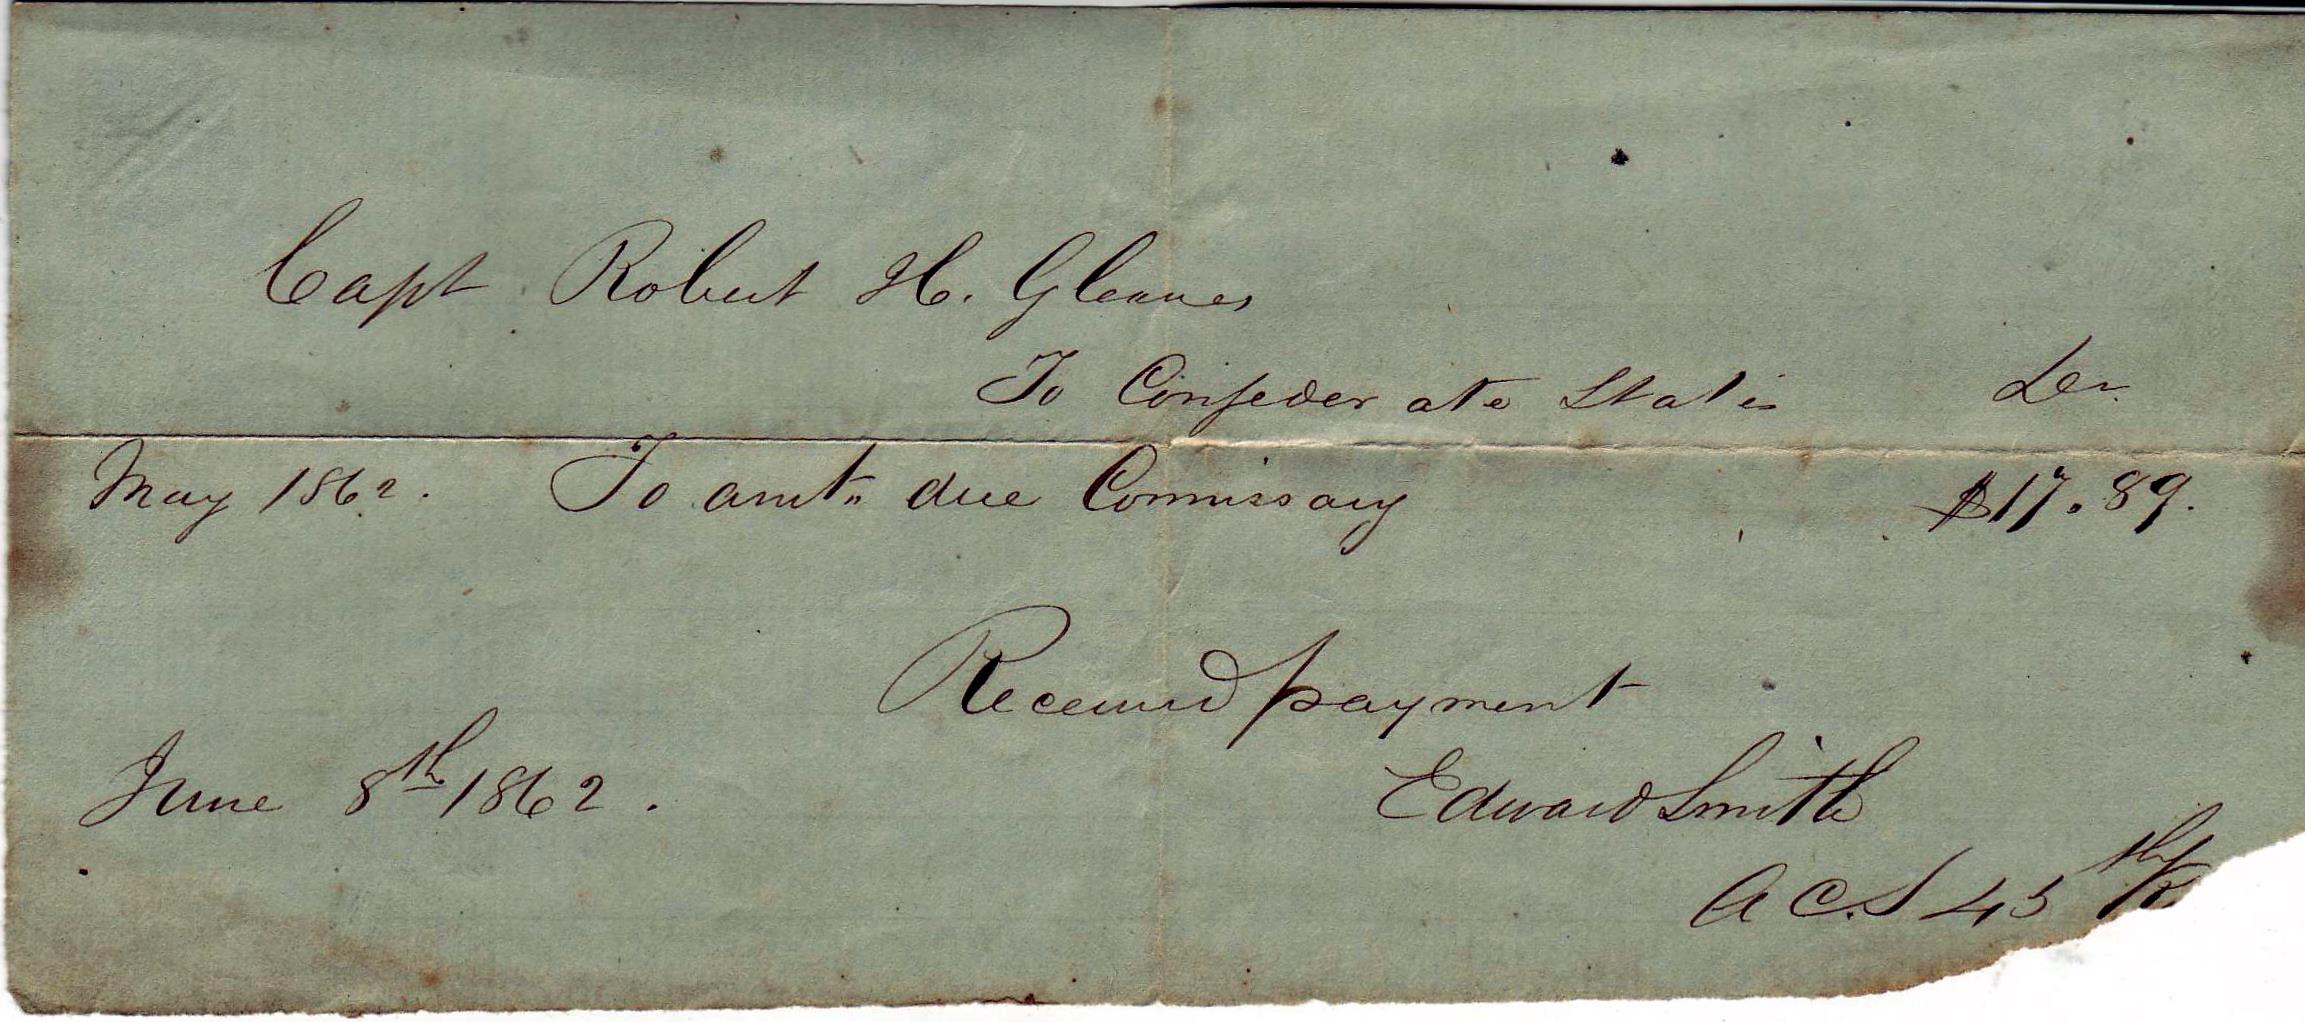 Capt Robert H. Gleaves
To Confederate States Dr.
May 1862. To amt. due Commissary $17.89.
Received payment
June 8th 1862. Edward Smith
A C.S 45th